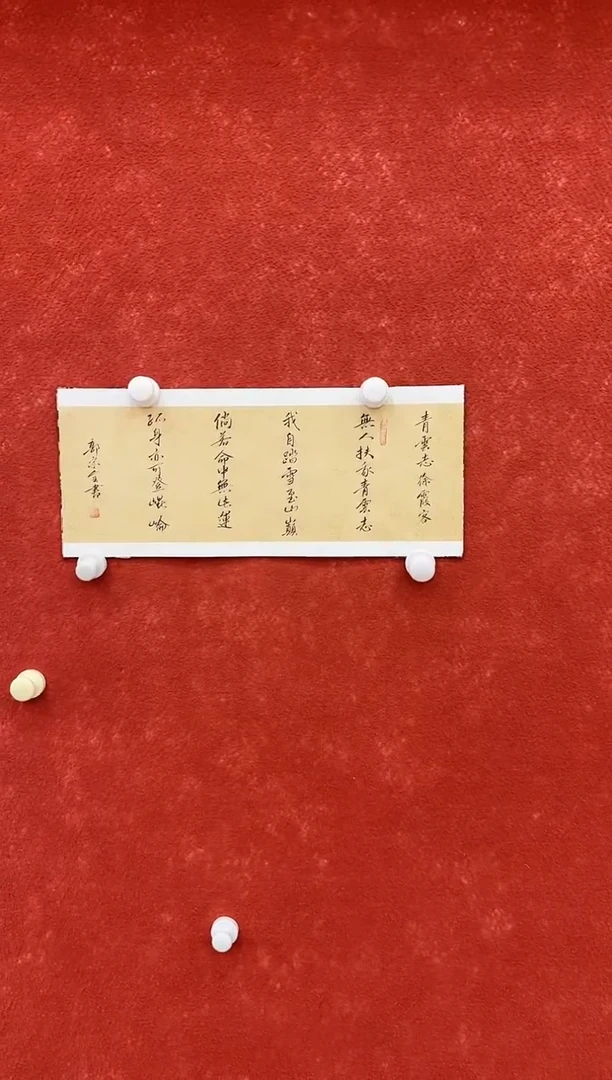 青雲志徐霞客
無人扶我青雲志
我自踏雪至山巔
倘若命中無此運
孤身亦可登崐崘
郭宗全書